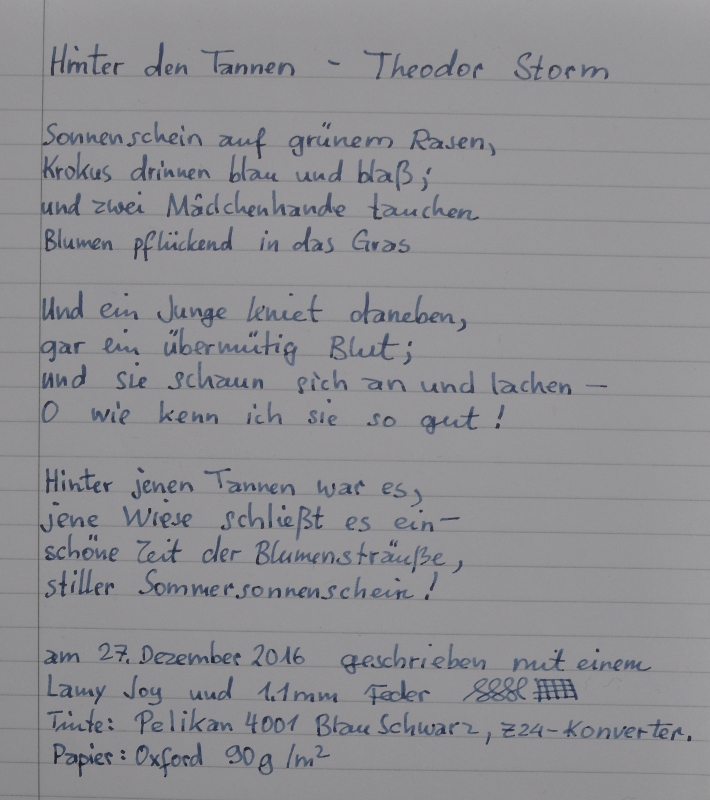 Hinter den Tannen - Theodor Storm
Sonnenschein auf grünem Rasen,
Krokus drinnen blau und blaß;
und zwei Mädchenhände tauchen
Blumen pflückend in das Gras
Und ein Junge kniet daneben,
gar ein übermütig Blut;
und sie schaun sich an und lachen –
O wie kenn ich sie so gut!
Hinter jenen Tannen war es,
jene Wiese schließt es ein –
schöne Zeit der Blumensträuße,
stiller Sommersonnenschein!
am 27. Dezember 2016 geschrieben mit einem
Lamy Joy und 1.1mm Feder
Tinte: Pelikan 4001 Blau Schwarz, Z24-Konverter.
Papier: Oxford 90g/m²